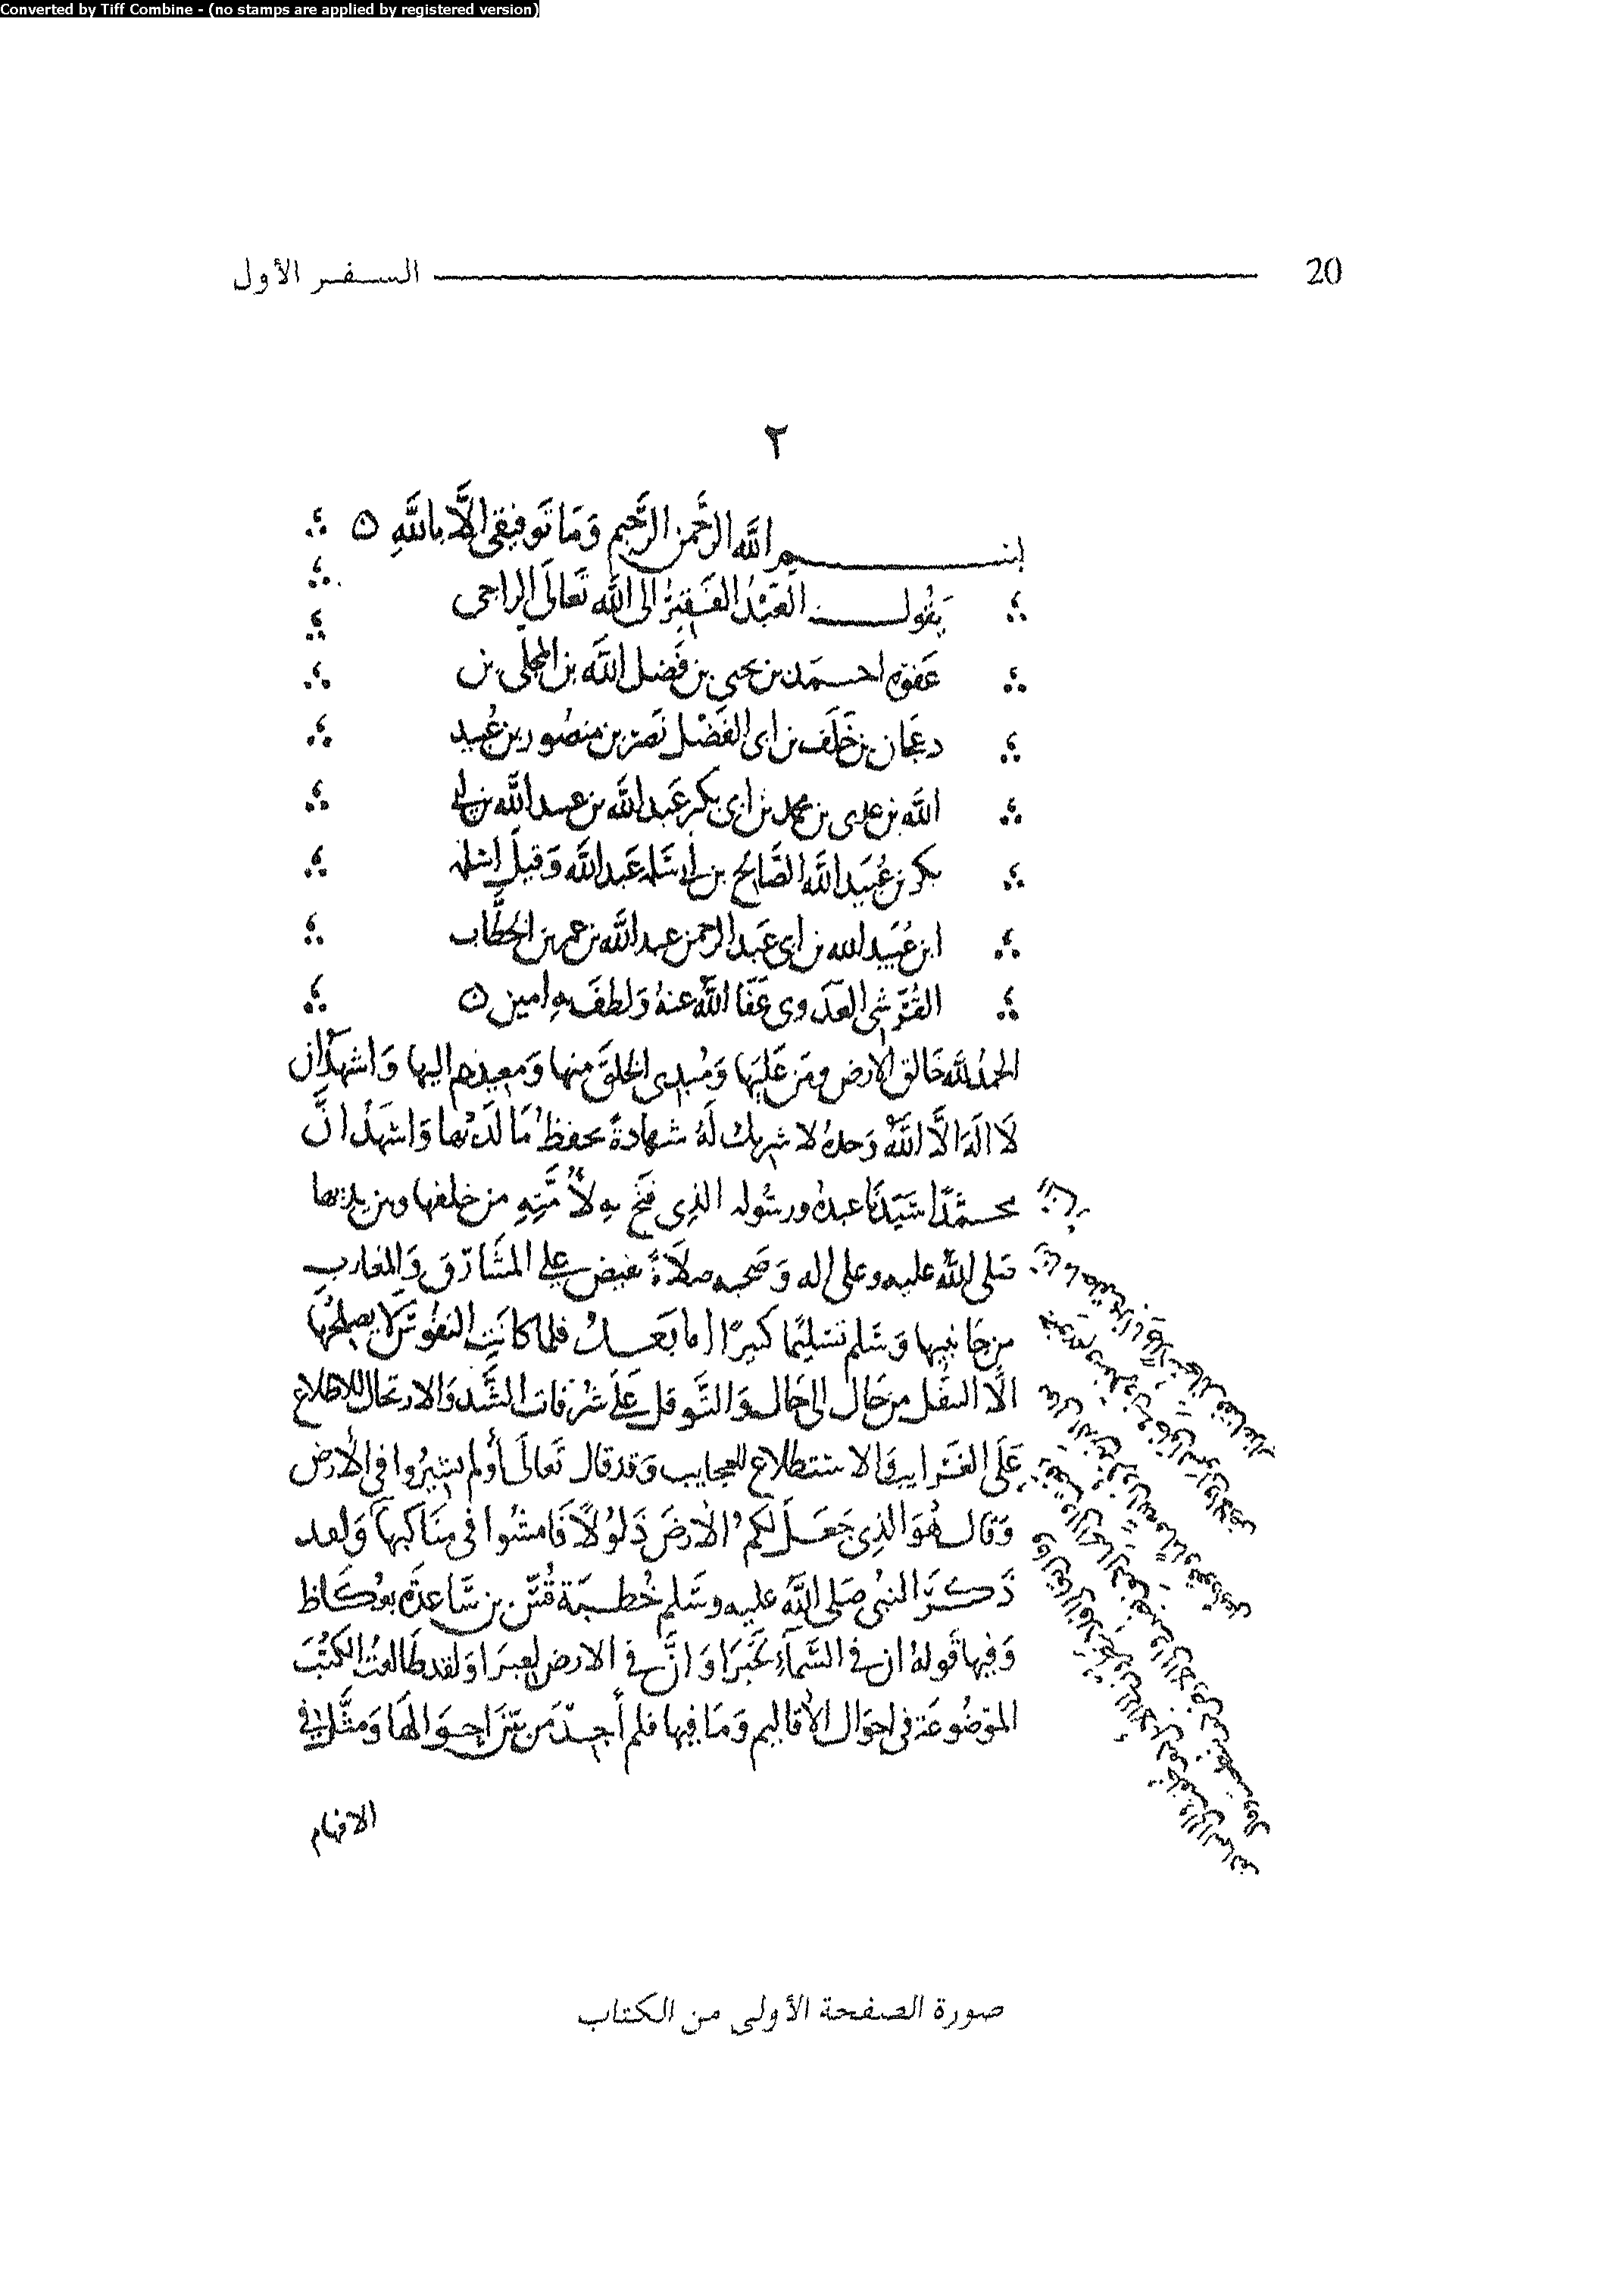 Converted by Tiff Combine - (no stamps are applied by registered version)
20 السفر الأول
٢
بسم الله الرحمن الرحيم وَمَا تَوفيقى الَّا بالله
يَقُول العَبْدُ الفَقيرُ الى الله تَعَالَى الراجى
عَفوه احمَد بن يحيى بن فَضل الله بن المجلى بن
دعجان بن خَلَف بن ابى الفَضْل نَصر بن منصُور بن عُبيد
الله بن على بن محمد بن ابى بكر عَبد الله بن عبيد الله بن ابى
بكر بن عُبَيد الله الصَّالح بن ابى سَلمه عَبد الله وَقيل سلمه
ابن عُبَيد الله بن ابى عَبد الرحمن عبد الله بن عمر بن الخطَّاب
القُرَشى العَدَوى عَفَا اللهُ عنهُ وَلطفَ به امين
الحمدُ لله خَالق الارض ومَن عَلَيها وَمُبدى الخلق منها وَمعيدهم اليها وَاشهدُ ان
لَا الَه الَّا اللهُ وَحدهُ لا شريك لَهُ شهادةً تحفظُ مَا لَدَيها وَاشهَدُ انَّ
محمَّدًا سَيّدَنَا عبدهُ ورسُوله الذى فتح به لأُمَّتِهِ من خلفها ومن يديها
صَلى اللهُ عليه وعلى اله وَصَحبه صلَاةً تفيض على المشَارق وَالمغارب
من جَانبيها وَسَلم تسليمًا كبيرًا اما بَعدُ فلما كانَت النفُوسُ لا يصلحُها
الَّا التنقُّل من حَال الى حَال وَالتَّوقل عَلَى شُرفات الشَّد وَالارتحال للاطلاع
عَلَى الغَرايب وَالاستطلاع للعجايب وَقد قال تَعَالَى أوَلم يسيرُوا فى الأرض
وَقال هُوَ الذى جَعَلَ لكم الأرضَ ذَلُولًا فَامشُوا فى مَنَاكبهَا وَلقد
ذكَرَ النبىُ صَلى اللهُ عليه وسَلم خُطبَة قُسّ بن سَاعدَة بعُكَاظ
وَفيها قَولهُ ان فى السَّمَاءِ لخَبَرَا وَانَّ فى الارض لعبرَا وَلقد طَالعتُ الكتُبَ
الموضُوعَة فى احوَال الأقاليم وَمَا فيها فلم أجدْ مَن بَيَّنَ احوَالهَا وَمثَّلَها فى
الافهام
صورة الصفحة الأولى من الكتاب